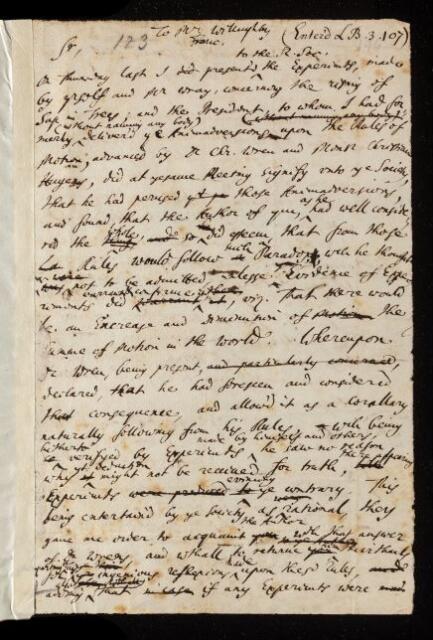 To Mr Willughby (Entered L.B. 3. 107)
Sr, 123 franc.
to the R. Soc.
On thursday last I did present the Experiments, made
by yrself and Mr wray, concerning the rising of
Sap in Trees; and the President, to whom I had for-
(without naming any body)
merly deliver'd ye Animadversions upon the Rules of
Motion, advanced by Dr Chr. Wren and Monsr Christian
Hugens, did at ye same Meeting signify unto ye Society,
That he had perused those Animadversions,
and found, that the Author of ym, as he had well conside-
red the whole, so did esteem that from those
Rules would follow such Paradox, wch he thought
not to be admitted, unlesse Evidence of Expe-
riments did viz. That there would
be an Encrease and Diminution of the
Summe of Motion in the world. Whereupon
Dr Wren, being present, and particularly concerned,
declared, that he had foreseen and considered
that consequence, and allow'd it as a corollary
naturally following from his Rules, wch being
hitherto made by himself and others
verified by Experiments he saw no reason,
why ye deduction might not be received for truth,
Experiments were produced to ye contrary This
being entertain'd by ye Society as rational they
the Author
gave me order to acquaint with this answer
of Dr Wrens, and withall to returne thankes
ingenious reflexions upon these Rules,
adding that if any Experiments were made